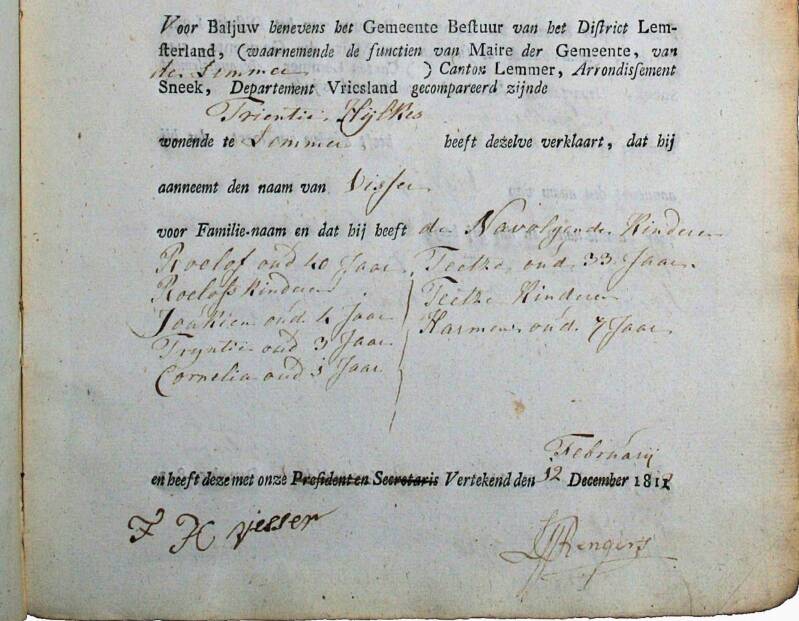 Voor Baljuw benevens het Gemeente Bestuur van het District Lem-
sterland, (waarnemende de functien van Maire der Gemeente, van
de Lemmer ) Canton Lemmer, Arrondissement
Sneek, Departement Vriesland gecompareerd zijnde
Trientie Hylkes
wonende te Lemmer heeft dezelve verklaart, dat hij
aanneemt den naam van Visser
voor Familie-naam en dat hij heeft de Navolgende Kinderen
Roelof oud 40 Jaar, Teetke, oud 33 Jaar.
Roelofs kinderen Teetke Kinderen
Joakien oud 4 Jaar Harmen oud 7 Jaar
Tryntie oud 3 Jaar
Cornelia oud 1 Jaar
Februarij
en heeft deze met onze President en Secretaris Vertekend den 12 December 1812
F H Vesser
Rengers